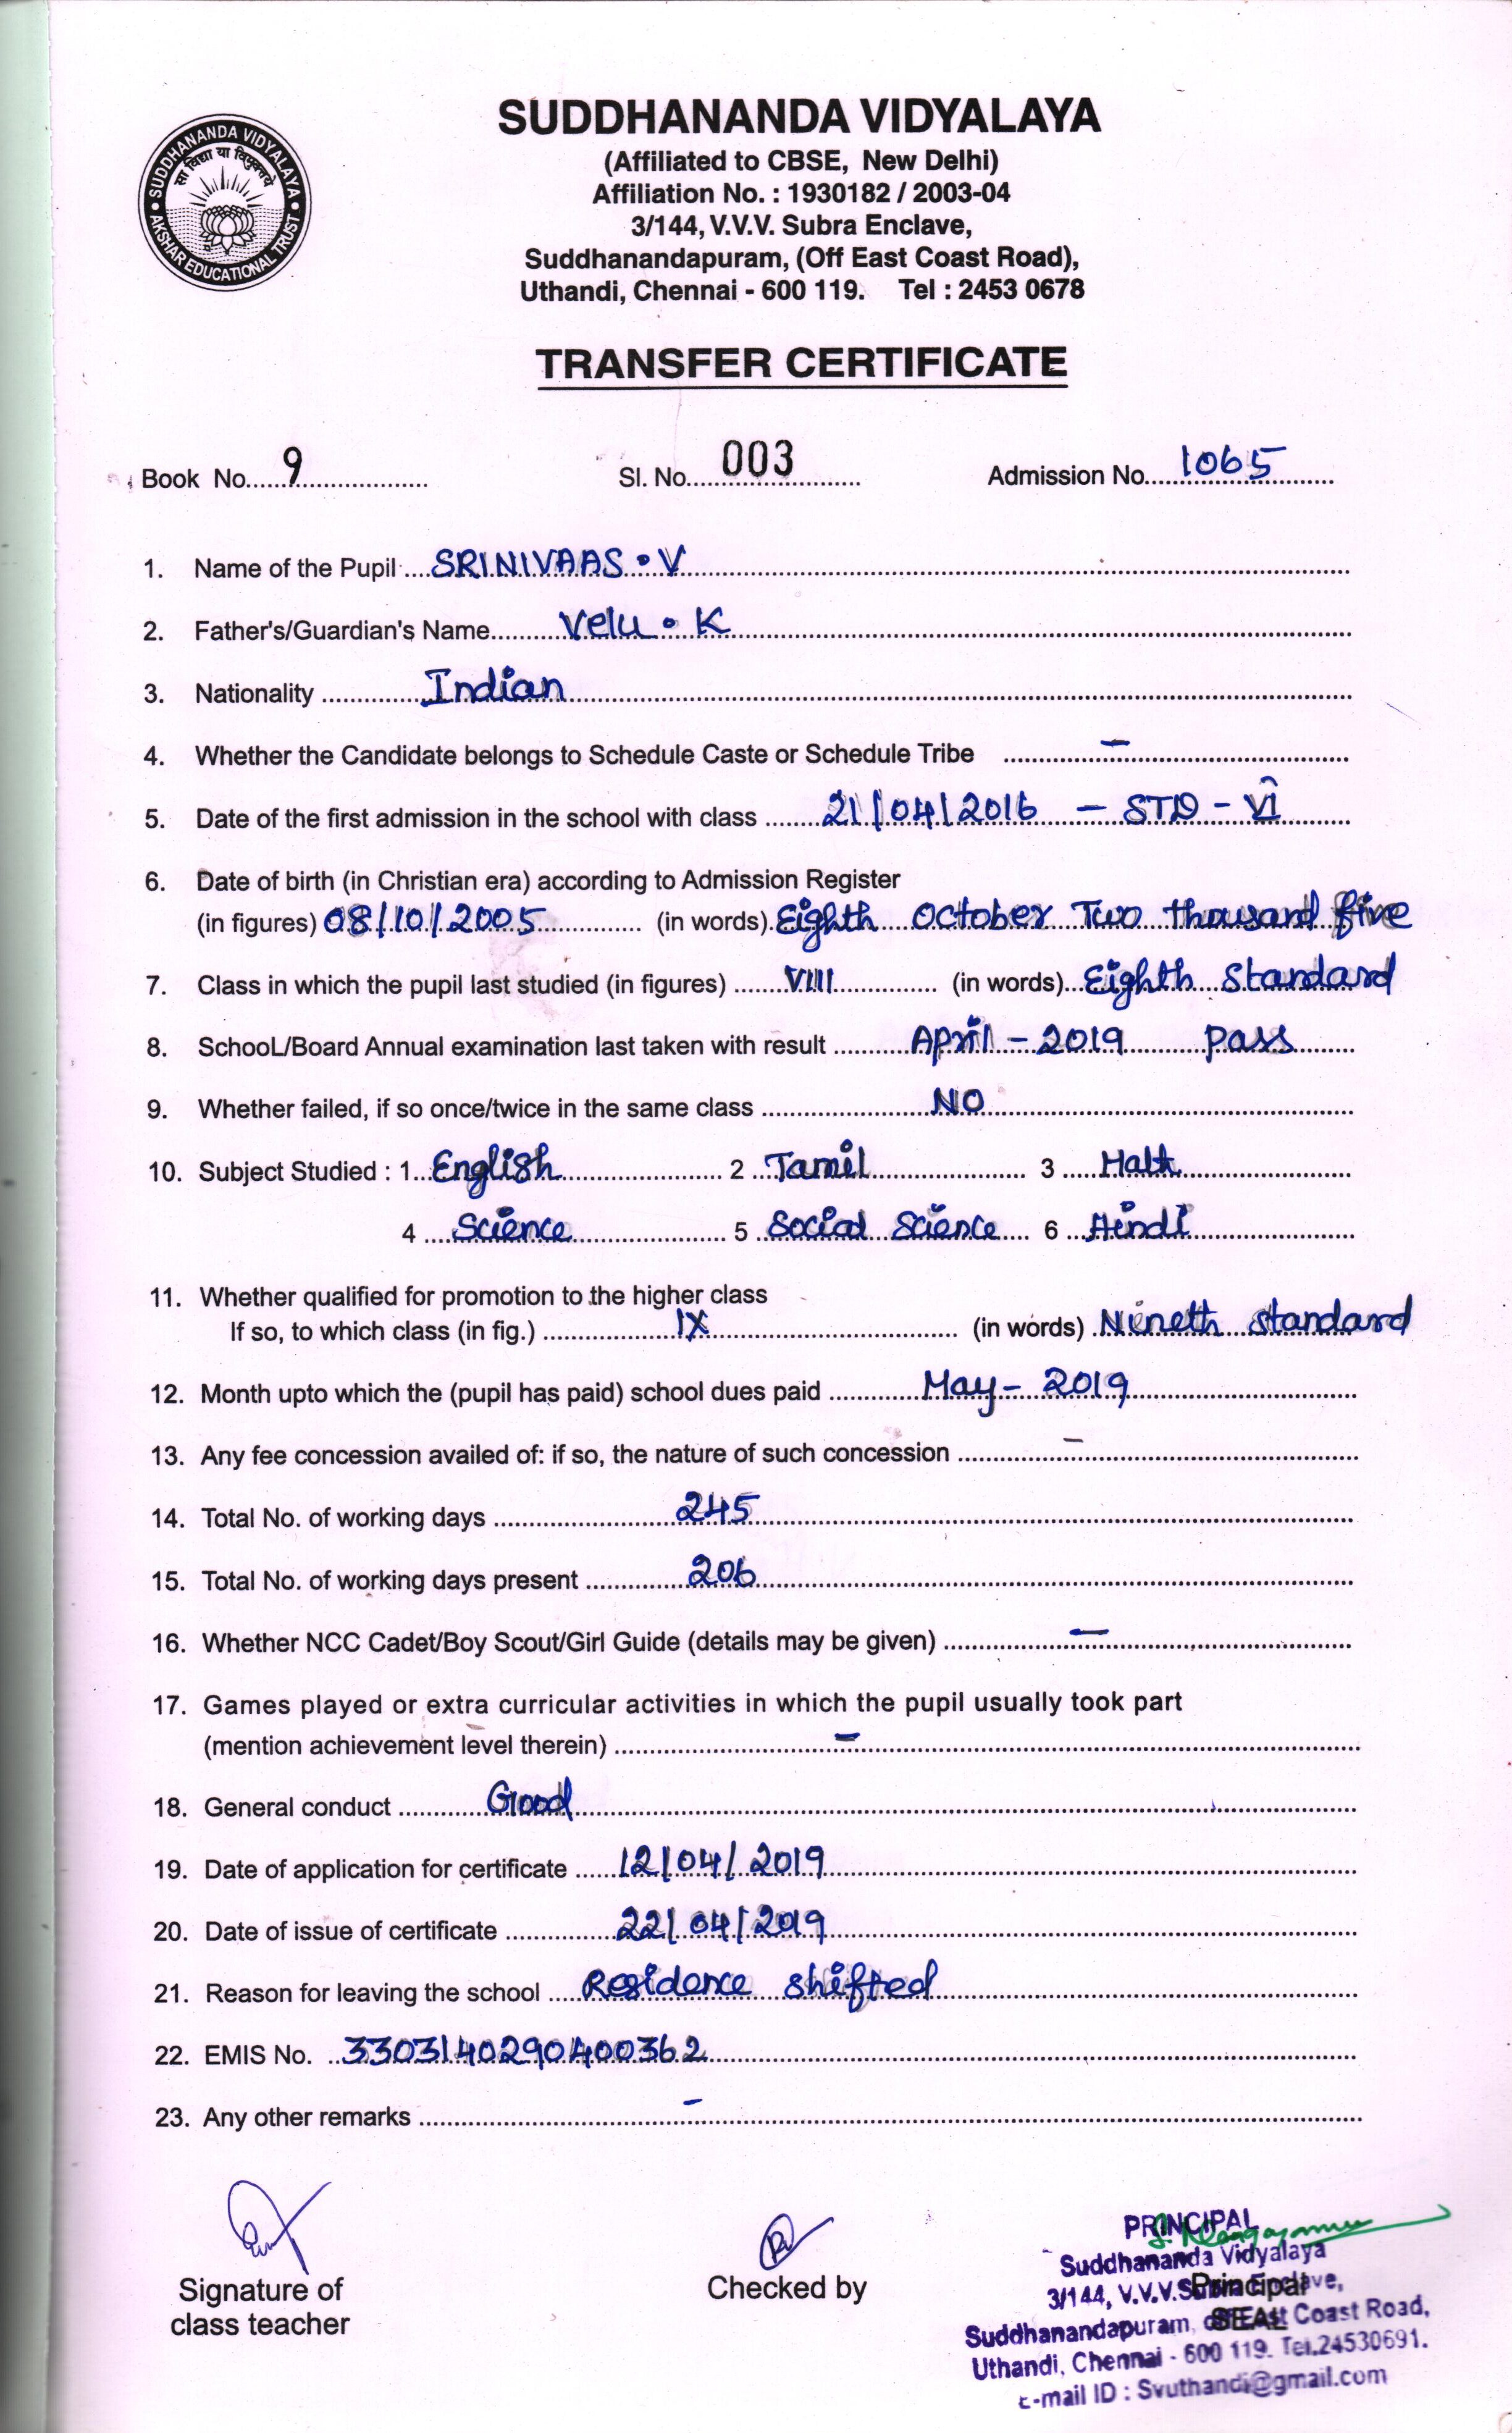 SUDDHANANDA VIDYALAYA
(Affiliated to CBSE, New Delhi)
Affiliation No. : 1930182 / 2003-04
3/144, V.V.V. Subra Enclave,
Suddhanandapuram, (Off East Coast Road),
Uthandi, Chennai - 600 119. Tel : 2453 0678
SUDDHANANDA VIDYALAYA
सा विद्या या विमुक्तये
AKSHAR EDUCATIONAL TRUST
TRANSFER CERTIFICATE
Book No. 9 Sl. No. 003 Admission No. 1065
1. Name of the Pupil SRINIVAAS . V
2. Father's/Guardian's Name Velu . K
3. Nationality Indian
4. Whether the Candidate belongs to Schedule Caste or Schedule Tribe –
5. Date of the first admission in the school with class 21/04/2016 – STD – VI
6. Date of birth (in Christian era) according to Admission Register
(in figures) 08/10/2005 (in words) Eighth October Two thousand five
7. Class in which the pupil last studied (in figures) VIII (in words) Eighth Standard
8. SchooL/Board Annual examination last taken with result April – 2019 Pass
9. Whether failed, if so once/twice in the same class NO
10. Subject Studied : 1 English 2 Tamil 3 Math
4 Science 5 Social Science 6 Hindi
11. Whether qualified for promotion to the higher class
If so, to which class (in fig.) IX (in words) Nineth Standard
12. Month upto which the (pupil has paid) school dues paid May – 2019
13. Any fee concession availed of: if so, the nature of such concession –
14. Total No. of working days 245
15. Total No. of working days present 206
16. Whether NCC Cadet/Boy Scout/Girl Guide (details may be given) –
17. Games played or extra curricular activities in which the pupil usually took part
(mention achievement level therein) –
18. General conduct Good
19. Date of application for certificate 12/04/2019
20. Date of issue of certificate 22/04/2019
21. Reason for leaving the school Residence shifted
22. EMIS No. 3303140290400362
23. Any other remarks –
Signature of
class teacher
Checked by
Principal
SEAL
PRINCIPAL
Suddhananda Vidyalaya
3/144, V.V.V. Subra Enclave,
Suddhanandapuram, off East Coast Road,
Uthandi, Chennai - 600 119. Tel.24530691.
E-mail ID : Svuthandi@gmail.com